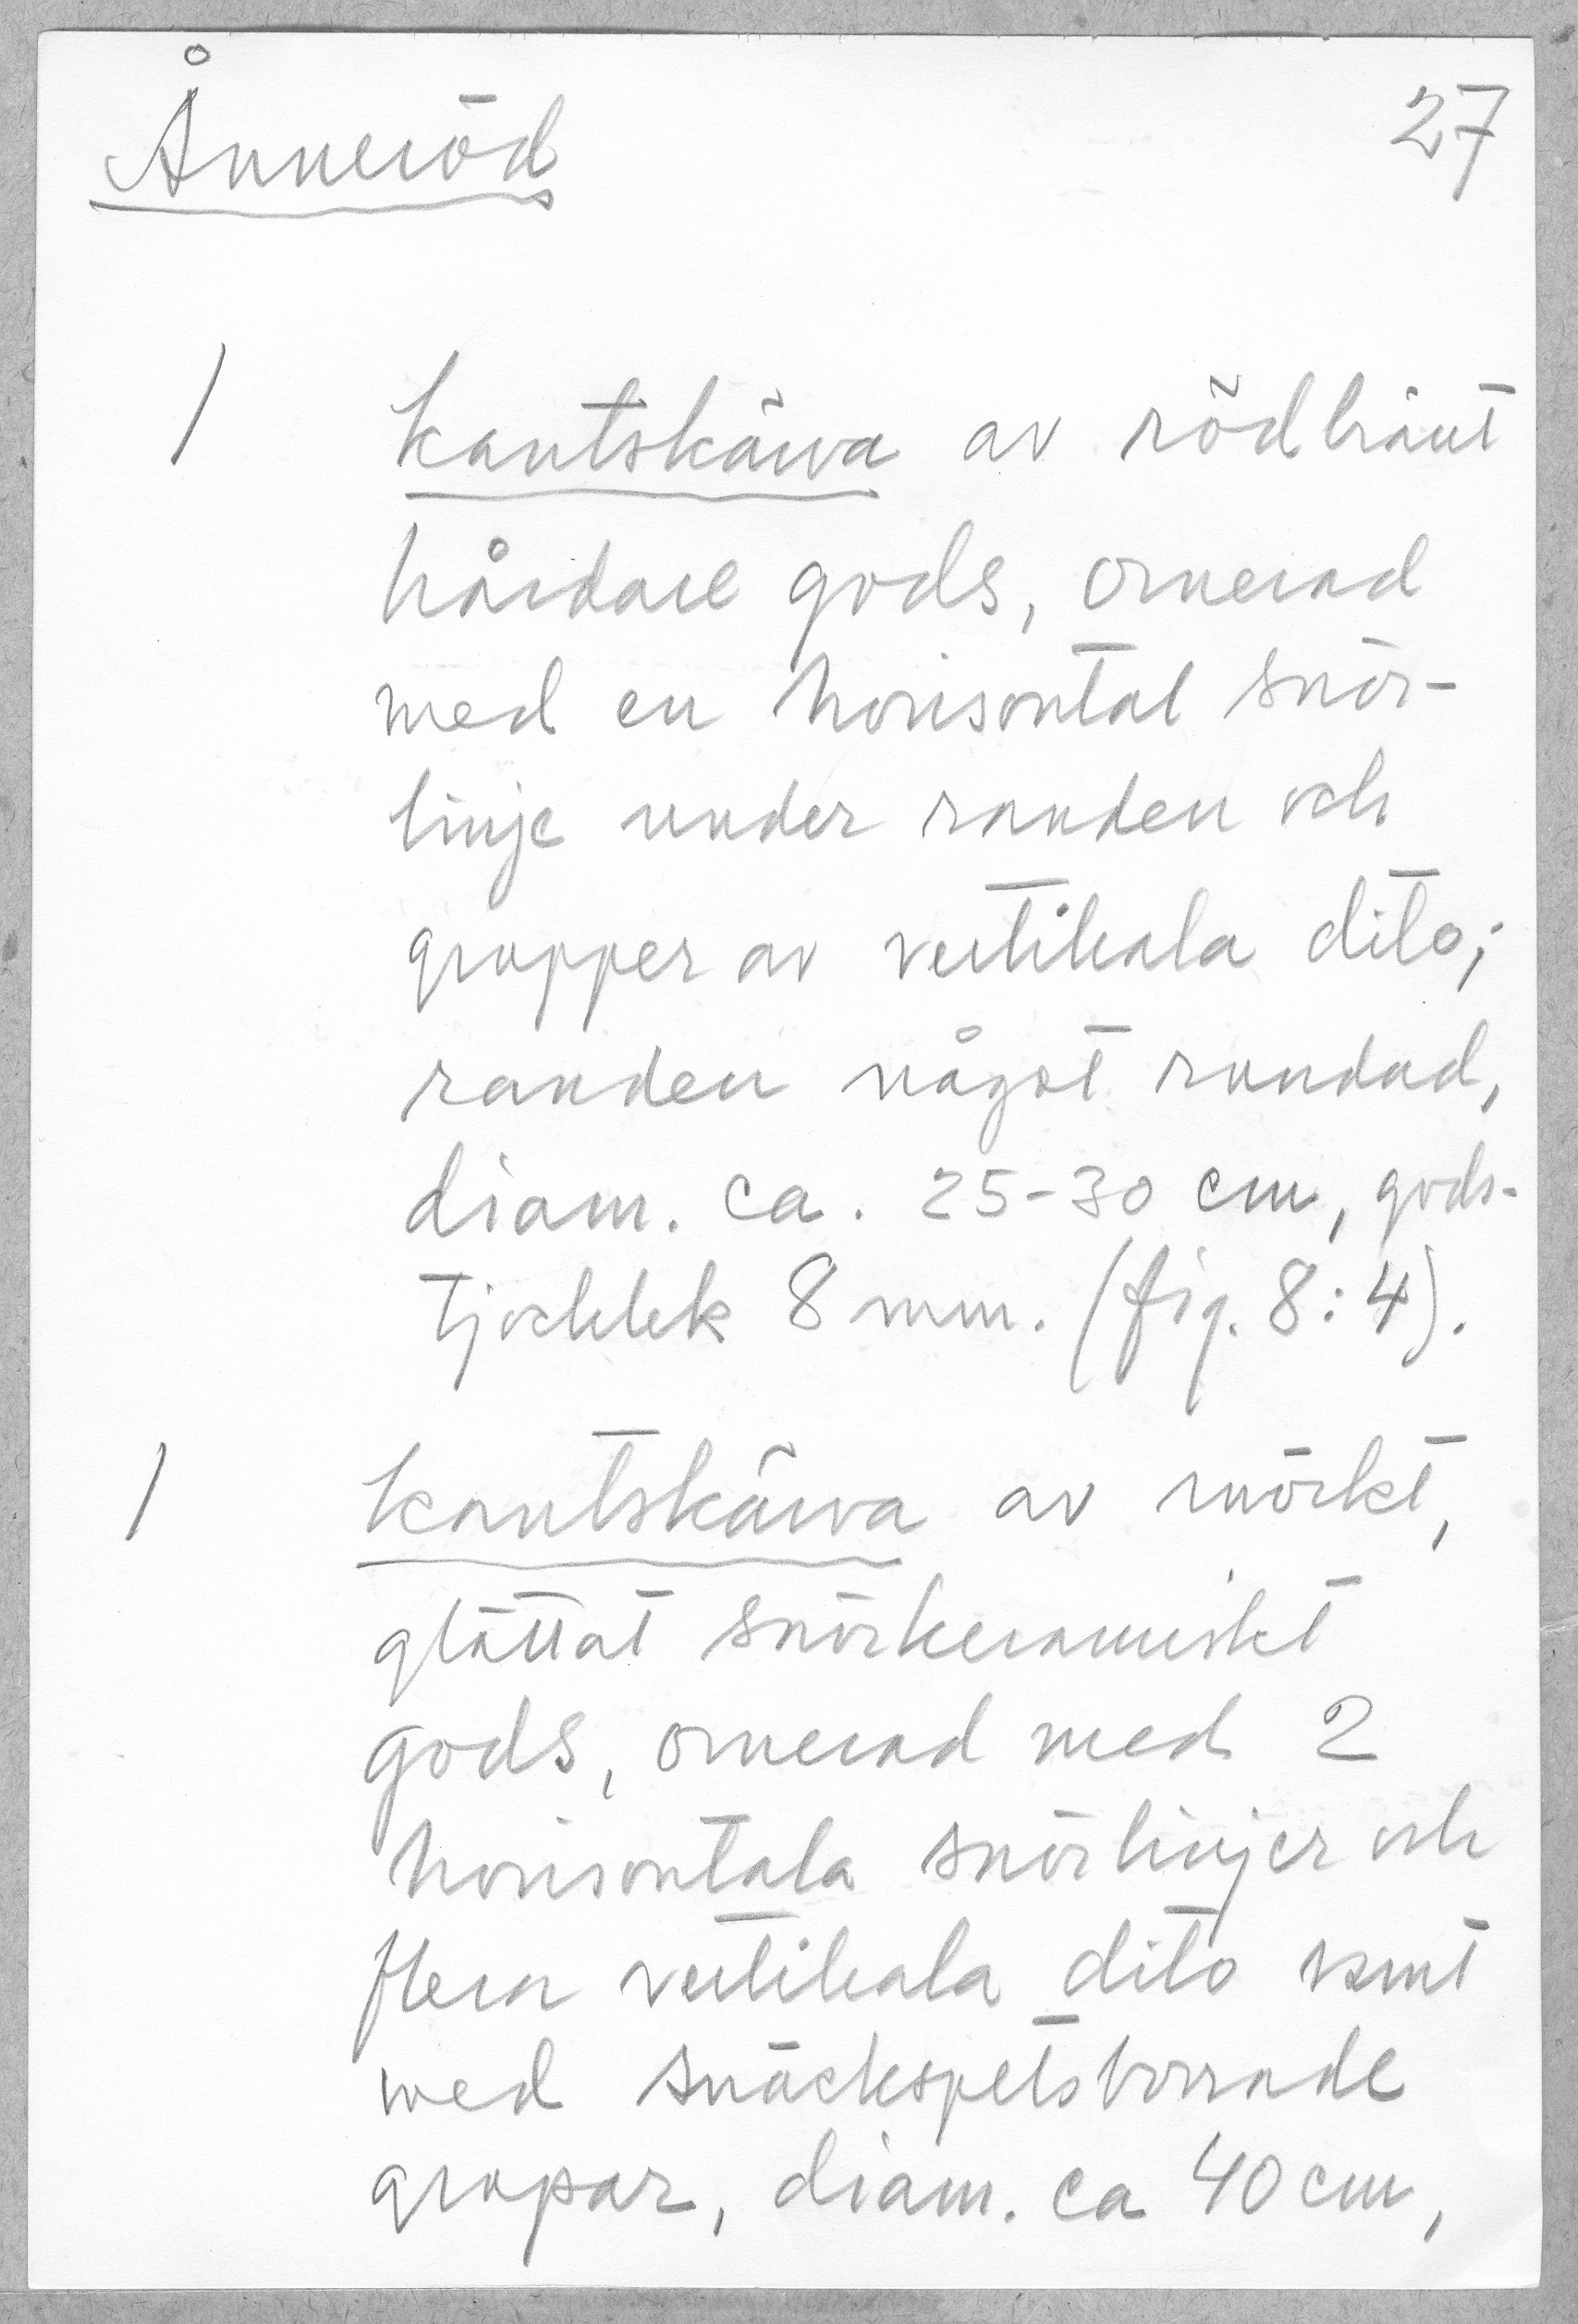 Ånneröd 27
1 kantskärva av rödbränt
hårdare gods, ornerad
med en horisontal snör-
linje under randen och
grupper av vertikala dito;
randen något rundad,
diam. ca. 25-30 cm, gods-
tjocklek 8 mm. (fig. 8:4).
1 kantskärva av mörkt,
glättat snörkeramiskt
gods, ornerad med 2
horisontala snörlinjer och
flera vertikala dito samt
med snäckspetsborrade
gropar, diam. ca 40 cm,